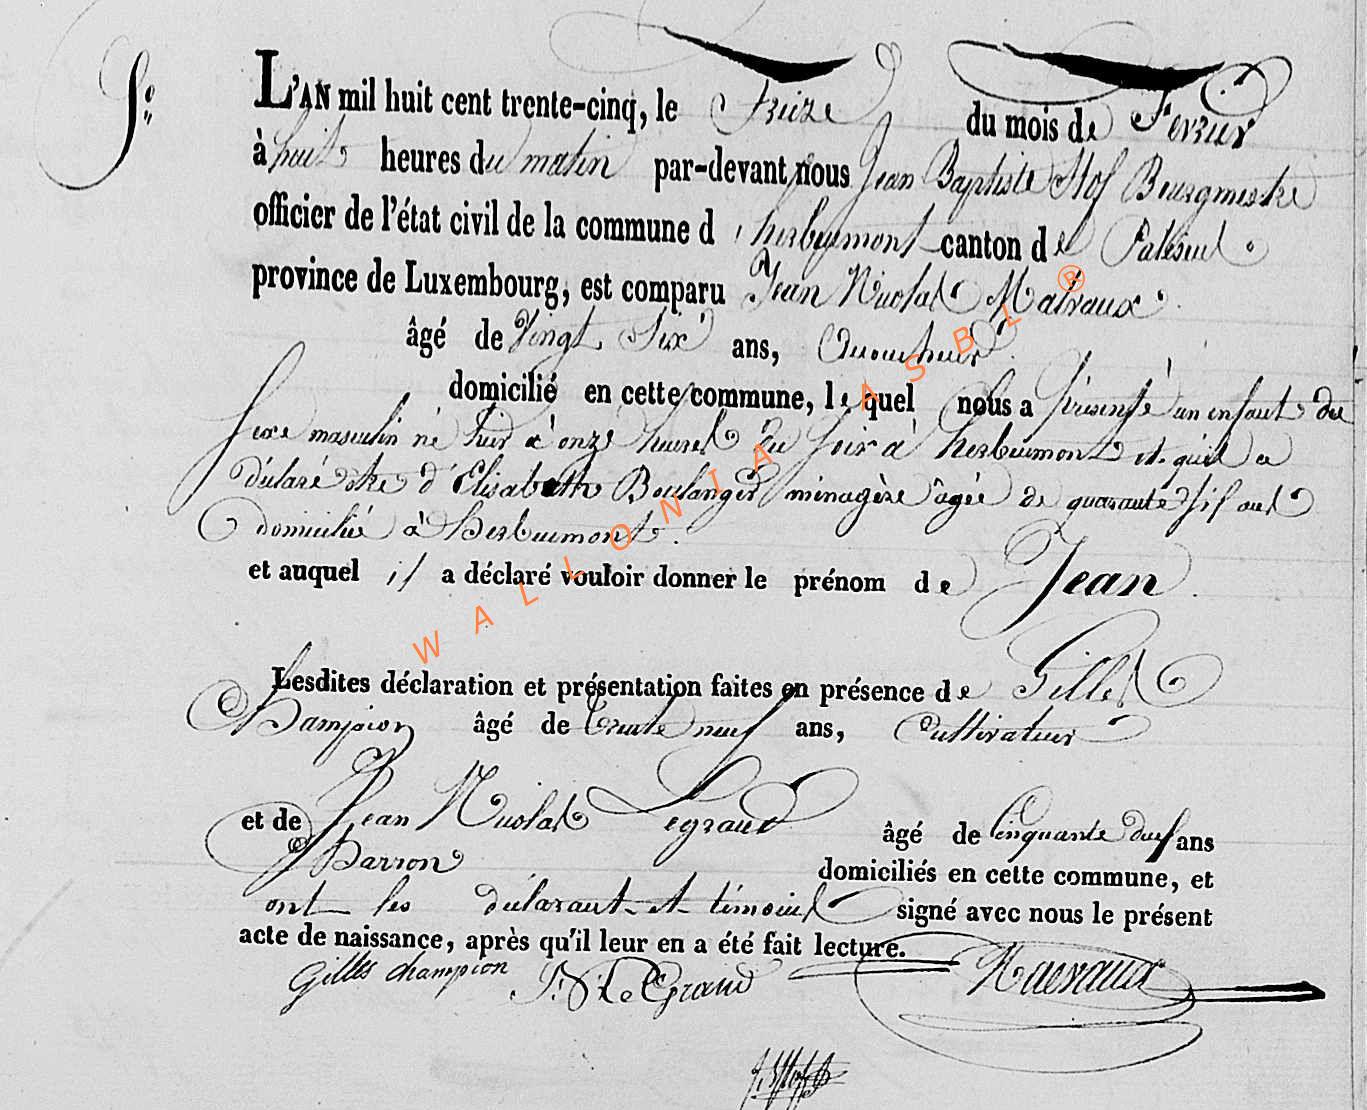 5.e
L'AN mil huit cent trente-cinq, le Treize du mois de Fevrier
à huit heures du matin par-devant nous Jean Baptiste Hof Bourgmestre
officier de l'état civil de la commune d' herbeumont canton de Paliseul
province de Luxembourg, est comparu Jean Nicolas Maîraux
âgé de Vingt Six ans, Accoucheur
domicilié en cette commune, le quel nous a Présenté un enfant du
sexe masculin né hier à onze heures du soir à herbeumont et qu'il a
déclaré être d'Elisabeth Boulanger ménagère âgée de quarante ans
domiciliée à herbeumont.
et auquel il a déclaré vouloir donner le prénom de Jean
Lesdites déclaration et présentation faites en présence de Gilles
Champion âgé de trente neuf ans, Cultivateur
et de Jean Nicolas Legrand âgé de Cinquante deux ans
domiciliés en cette commune, et
ont les déclarant et témoins signé avec nous le présent
acte de naissance, après qu'il leur en a été fait lecture.
Gilles champion J. N. Le Grand
WALLONIA ASBL ®